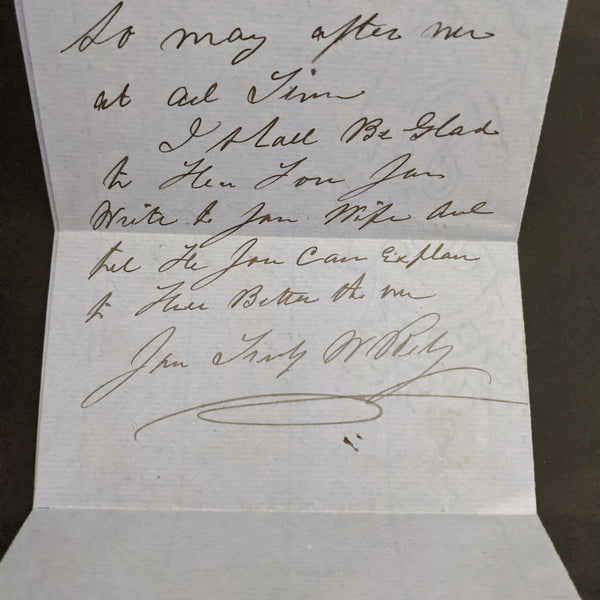 So may after me
at all Time
I shall Be Glad
to Hear You
Write to You Wife and
tell He You Can Explan
to Her Better the me
You Truly W